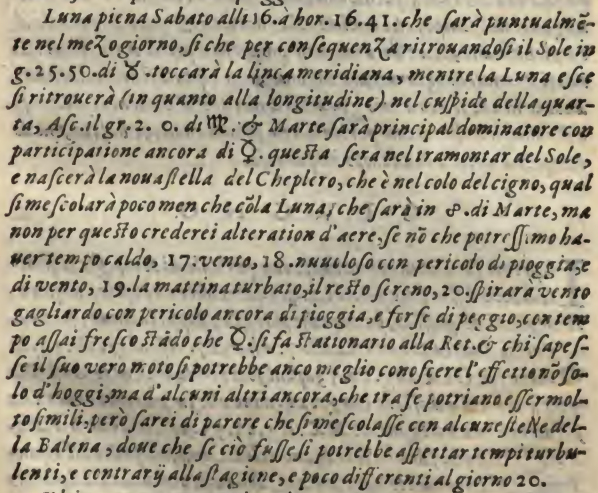 Luna piena Sabato alli 16. à hor. 16. 41. che ſarà puntualmẽ-
te nel mezo giorno, ſi che per conſequenza ritrouandoſi il Sole in
g. 25. 50. di ♉. toccarà la linea meridiana, mentre la Luna eſce
ſi ritrouerà (in quanto alla longitudine) nel cuſpide della quar-
ta, Aſc. il gr. 2. 0. di ♍. & Marte ſarà principal dominatore con
participatione ancora di ☿. queſta ſera nel tramontar del Sole,
e naſcerà la noua ſtella del Cheplero, che è nel colo del cigno, qual
ſi meſcolarà poco men che cõ la Luna, che ſarà in ☍. di Marte, ma
non per queſto crederei alteration d'aere, ſe nõ che potreſſimo ha-
uer tempo caldo, 17. vento, 18. nuuoloſo con pericolo di pioggia, e
di vento, 19. la mattina turbato, il reſto ſereno, 20. ſpirarà vento
gagliardo con pericolo ancora di pioggia, e forſe di peggio, con tem
po aſſai freſco ſtãdo che ☿. ſi fa ſtationario alla Ret. & chi ſapeſ-
ſe il ſuo vero moto ſi potrebbe anco meglio conoſcere l'effetto nõ ſo-
lo d'hoggi, ma d'alcuni altri ancora, che tra ſe potriano eſſer mol-
to ſimili, però ſarei di parere che ſi meſcolaſſe con alcune ſtelle del-
la Balena, doue che ſe ciò fuſſe ſi potrebbe aſpettar tempi turbu-
lenti, e contrarij alla ſtagione, e poco differenti al giorno 20.